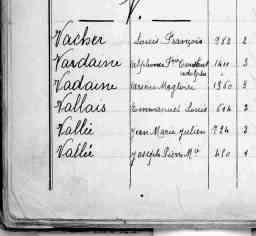 V.
Vacher Louis François 962 2
Vardaine Alphonse Fois Constant 1411 3
Adolphe
Vadaine Magloire 1360 3
Vallais Emmanuel Louis 614 2
Vallée Jean Marie Julien 724 2
Vallée Joseph Pierre Mie 480 1